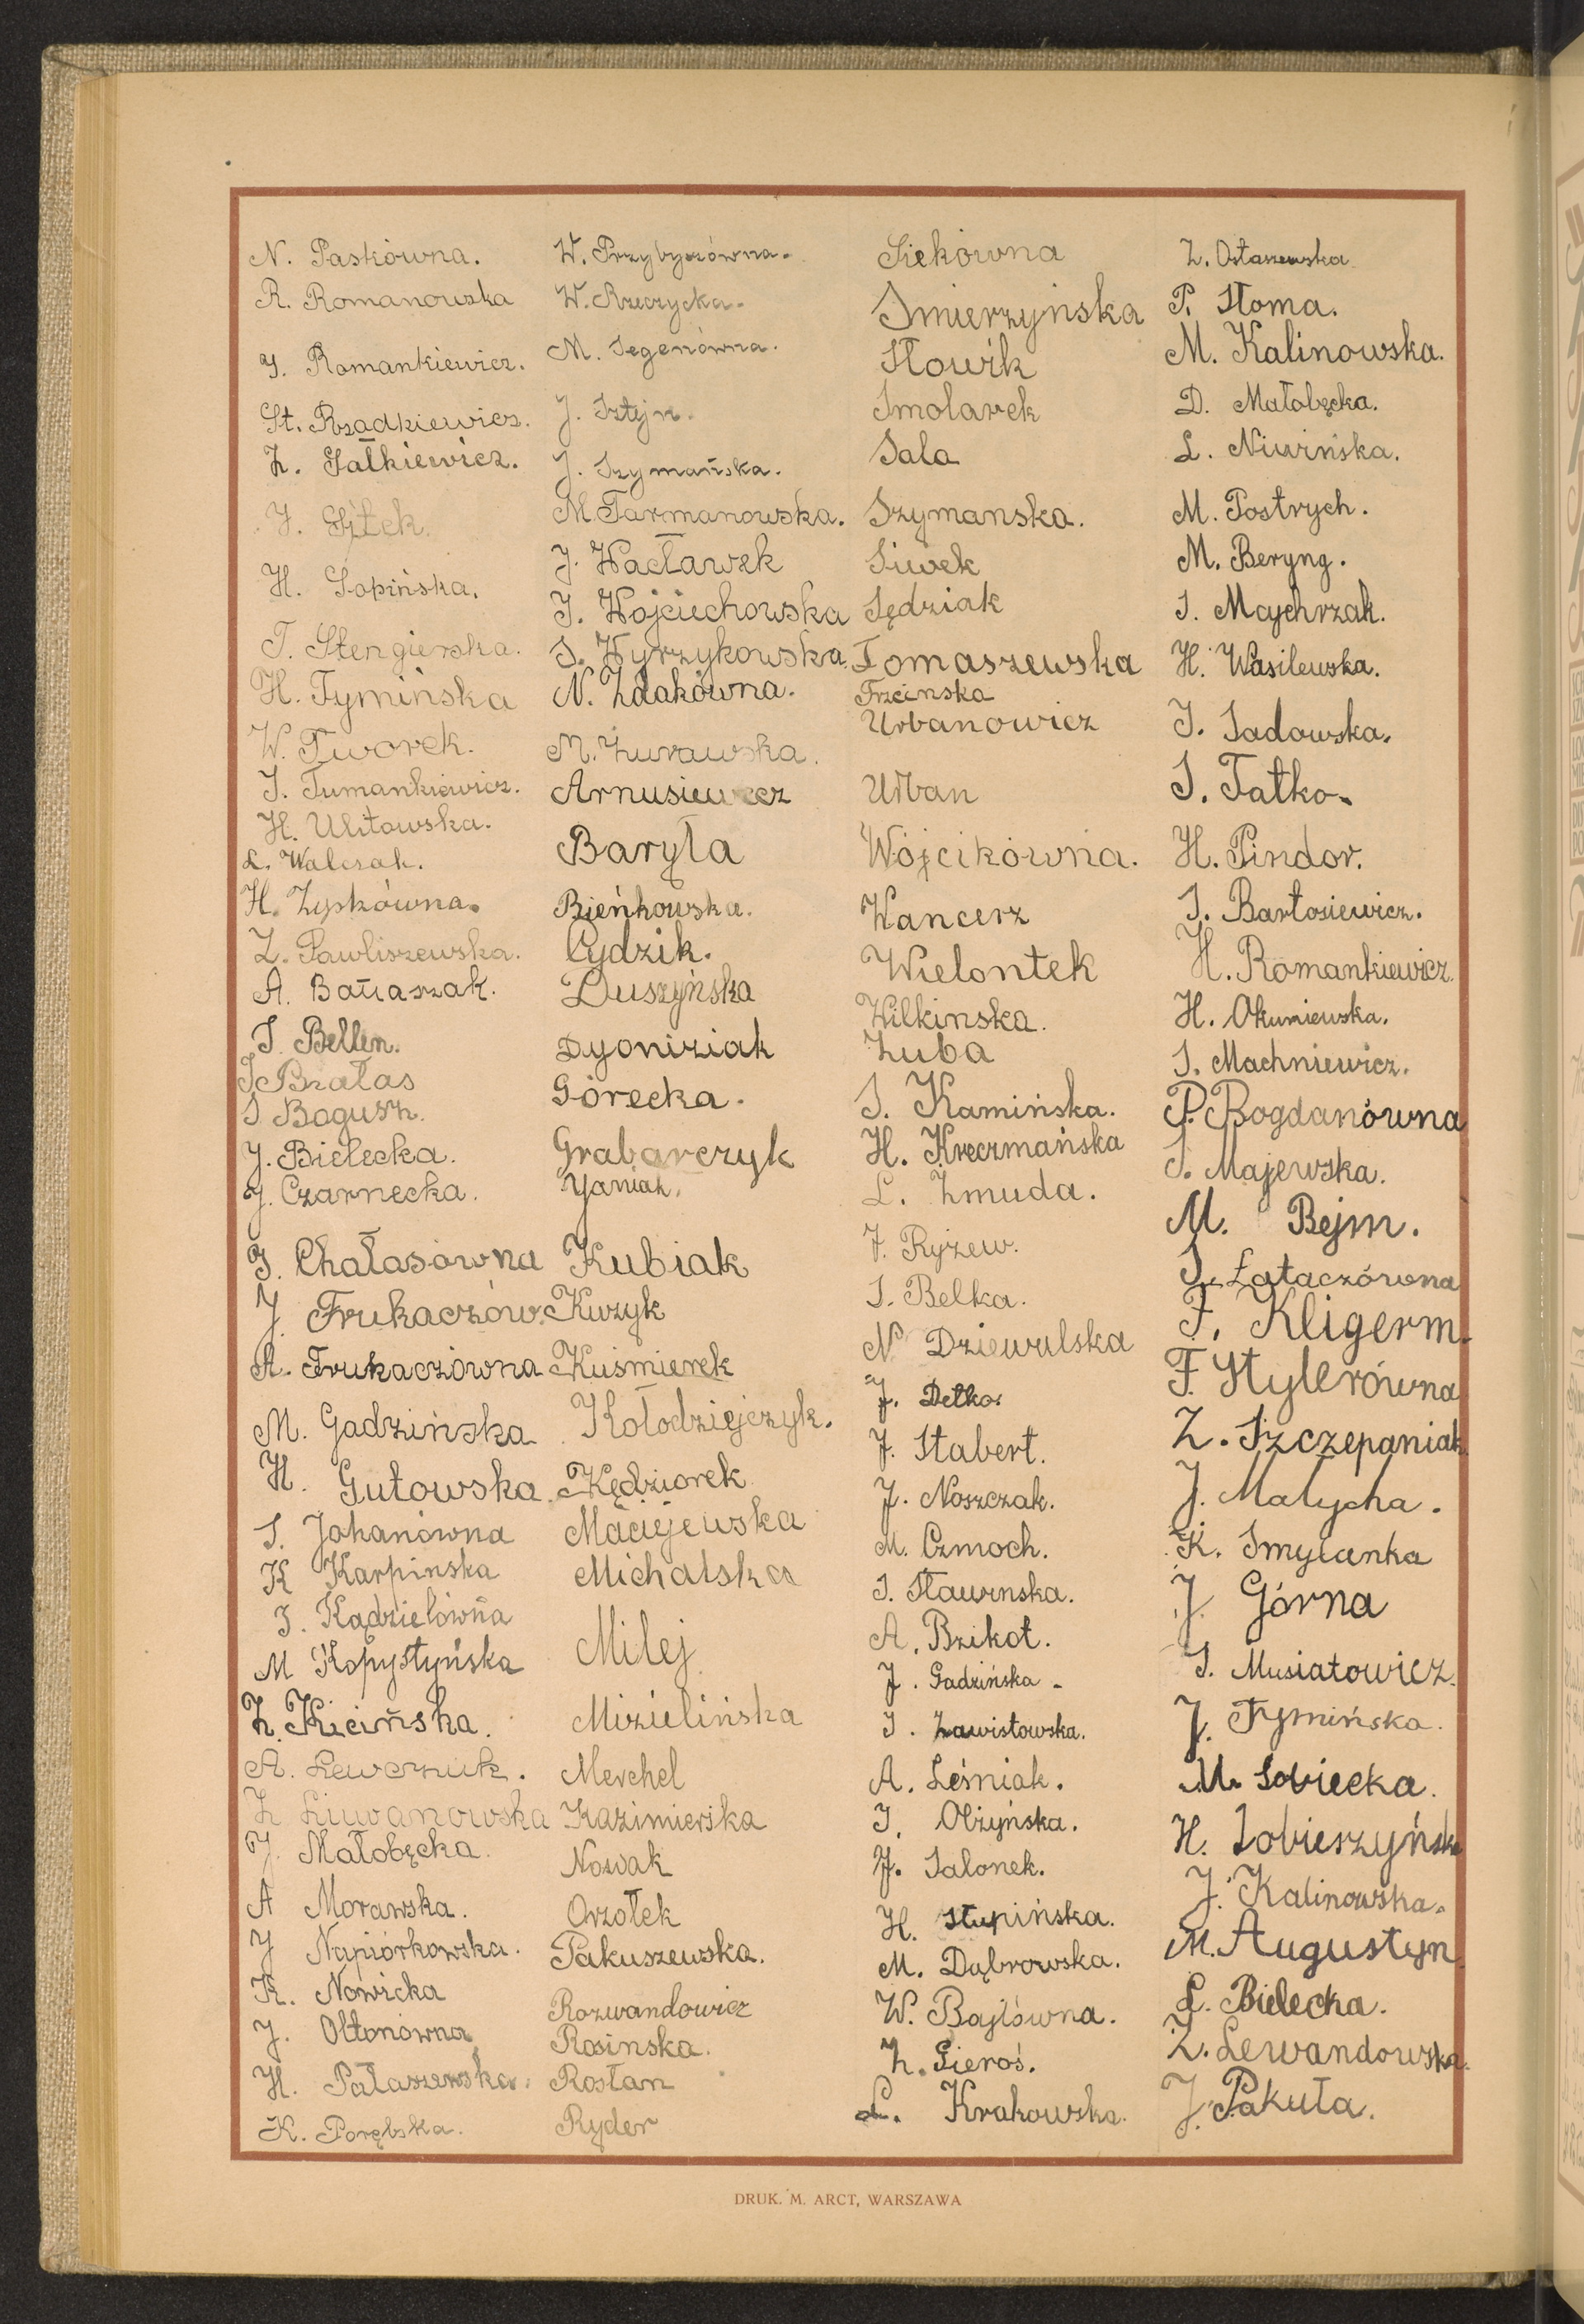 N. Paskówna.
R. Romanowska
J. Romankiewicz.
St. Rządkiewicz.
Z. Sałkiewicz.
J. Sitek.
H. Sopińska.
T. Stengierska.
H. Tymińska
W. Tworek.
J. Tumankiewicz.
H. Ulitowska.
L. Walczak.
H. Zyskówna.
Z. Pawliszewska.
A. Banaszak.
J. Bellen.
J. Białas
J Bogusz.
J. Bielecka.
J. Czarnecka.
J. Chałasówna
J Frukaczów.
A. Frukaczówna
M. Gadzińska
H. Gutowska.
J. Johanówna
K Karpinska
J. Kądzielówna
M Kopystyńska
Z. Kicińska.
A. Lewczuk.
Z Liwanowska
J. Małobęcka.
A Morawska.
J Napiórkowska.
K. Nowicka
J. Oltonówna
H. Pałaszewska.
K. Porębska.
W. Przybyszówna.
W. Rzeczycka.
M. Segenówna.
J. Sztejn.
J. Szymańska.
M. Tarmanowska.
J. Wacławek
J. Wojciechowska
S. Wyrzykowska.
N. Zdakówna.
M. Żurawska.
Arnusiewicz
Baryła
Bieńkowska.
Cydzik.
Duszyńska
Dyoniziak
Górecka.
Grabarczyk
Janiak.
Kubiak
Kuzyk
Kuśmierek
Kołodziejczyk.
Kędziorek
Maciejewska
Michalska
Milej
Mizielińska
Merchel
Kazimierska
Nowak
Orzołek
Pakuszewska.
Rozwandowicz
Rosinska.
Rosłan
Ryder
Siekówna
Smierzyńska
Słowik
Smolarek
Sala
Szymanska.
Siwek
Sędziak
Tomaszewska
Trzcinska
Urbanowicz
Urban
Wójcikówna.
Wancerz
Wielontek
Wilkinska.
Zuba
S. Kamińska.
H. Kreczmańska
L. Zmuda.
F. Ryżew.
S. Belka.
N Dziewulska
J. Detko.
J. Stabert.
J. Noszczak.
M. Czmoch.
S. Sławinska.
A. Bzikot.
J. Gadzińska.
J. Zawistowska.
A. Leśniak.
J. Olżyńska.
J. Salonek.
H. Słupińska.
M. Dąbrowska.
W. Bajlówna.
Z. Gieroś.
L. Krakowska.
Z. Ostaszewska
P. Słoma.
M. Kalinowska.
D. Małobęcka.
L. Niwińska.
M. Postrych.
M. Beryng.
S. Majchrzak.
H. Wasilewska.
J. Sadowska.
S. Tałko.
H. Pindor.
J. Bartosiewicz.
H. Romankiewicz.
H. Okuniewska.
S. Machniewicz.
P. Bogdanówna
S. Majewska.
M. Bejm.
S. Łataczówna
F. Kligerm.
F. Hylerówna
Z. Szczepaniak
J. Matycha.
K. Smylanka
J. Górna
S. Musiatowicz.
J. Tymińska.
M. Sobiecka.
H. Sobieszyńsk
J. Kalinowska.
M. Augustyn
L. Bielecka.
Z. Lewandowska.
J. Pakuła.
DRUK. M. ARCT, WARSZAWA